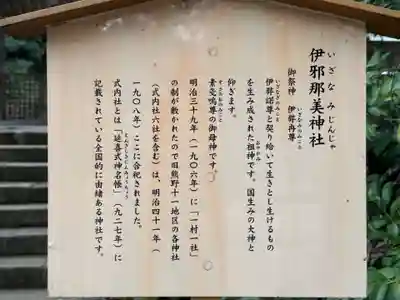 伊邪那美神社
いざなみじんじゃ
御祭神 伊弉冉尊
いざなみのみこと
伊弉諾尊と契り給いて生きとし生けるもの
いざなぎのみこと
を生み成された祖神です。国生みの大神と
おやがみ
仰ぎます。
素戔嗚尊の御母神です。
すさのおのみこと
明治三十九年（一九〇六年）に「一村一社」
の制が敷かれたので旧熊野十一地区の各神社
（式内社六社を含む）は、明治四十一年（
一九〇八年）ここに合祀されました。
式内社とは「延喜式神名帳」（九二七年）に
えんぎしきじんみょうちょう
記載されている全国的に由緒ある神社です。